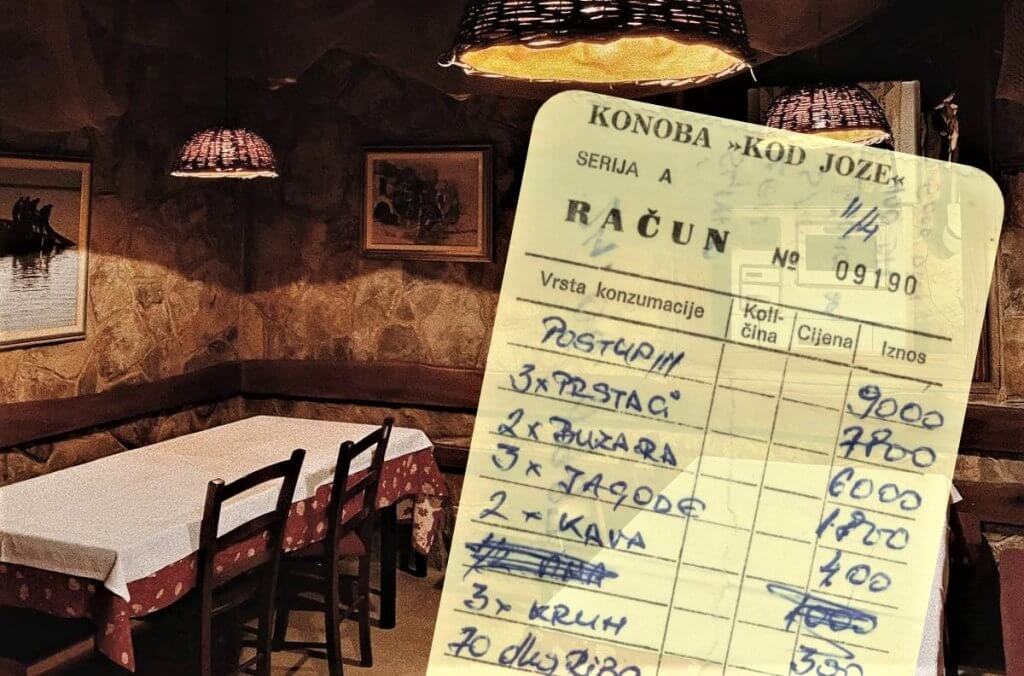 KONOBA »KOD JOZE«
SERIJA A
11/4
RAČUN № 09190
Vrsta konzumacije Koli-čina Cijena Iznos
POSTUP 9000
3x PRSTACI 7800
2x BUZARA 6000
3x JAGODE 1.800
2x KAVA 400
3x KRUH 300
70 dkg RIBA